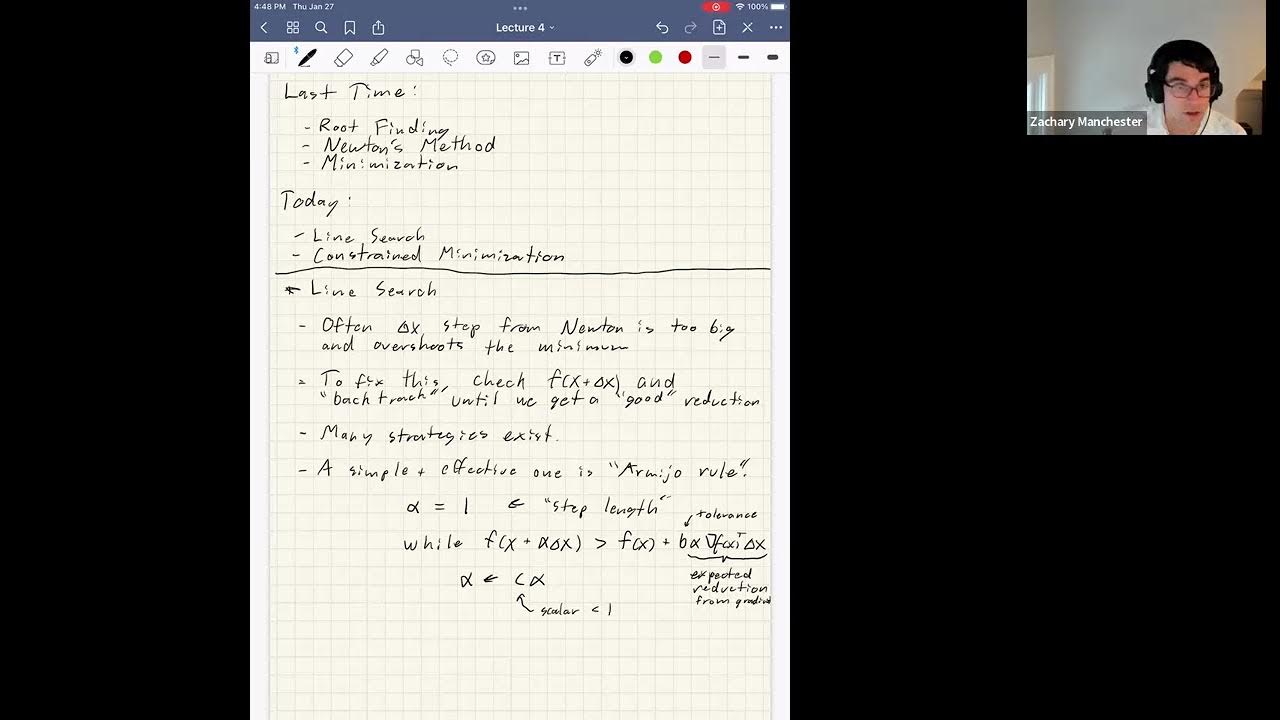 4:48 PM Thu Jan 27
100%
Lecture 4
Zachary Manchester
Last Time:
- Root Finding
- Newton's Method
- Minimization
Today:
- Line Search
- Constrained Minimization
* Line Search
- Often Δx step from Newton is too big
and overshoots the minimum
- To fix this, check f(x+Δx) and
"back track" until we get a "good" reduction
- Many strategies exist.
- A simple + effective one is "Armijo rule".
α = 1 ← "step length"
tolerance
while f(x + αΔx) > f(x) + bα∇f(x)ᵀΔx
expected
reduction
from gradient
α ← cα
scalar < 1